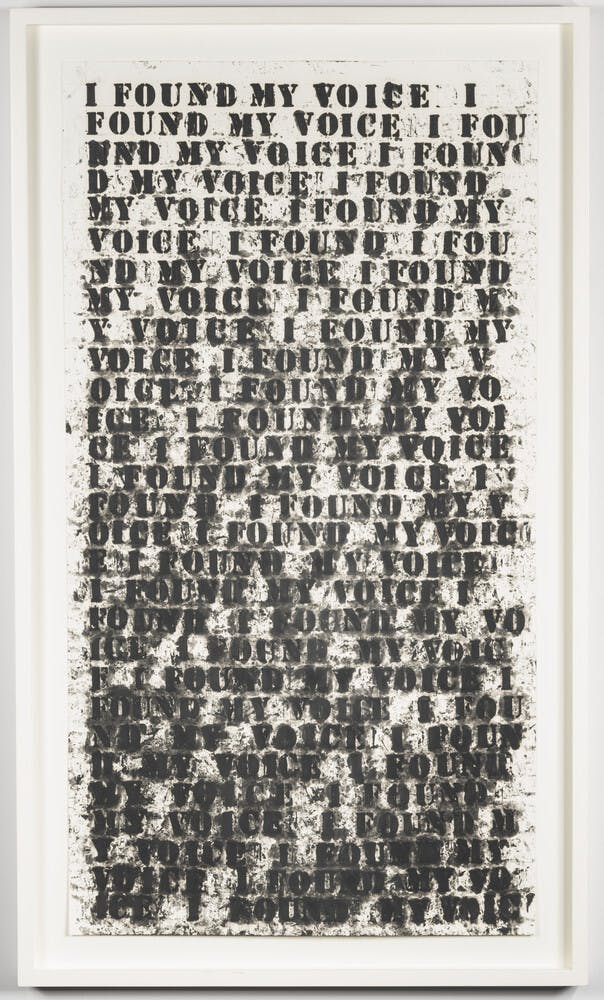 I FOUND MY VOICE I
FOUND MY VOICE I FOU
ND MY VOICE I FOUN
D MY VOICE I FOUND
MY VOICE I FOUND MY
VOICE I FOUND I FOU
ND MY VOICE I FOUND
MY VOICE I FOUND M
Y VOICE I FOUND MY
VOICE I FOUND MY V
OICE I FOUND MY VO
ICE I FOUND MY VOI
CE I FOUND MY VOICE
I FOUND MY VOICE I
FOUND I FOUND MY V
OICE I FOUND MY VOIC
E I FOUND MY VOICE
I FOUND MY VOICE I
FOUND I FOUND MY VO
ICE I FOUND MY VOIC
E I FOUND MY VOICE I
FOUND MY VOICE I FOU
ND MY VOICE I FOUN
D MY VOICE I FOUND
MY VOICE I FOUND
MY VOICE I FOUND M
Y VOICE I FOUND MY
VOICE I FOUND MY VO
ICE I FOUND MY VOICE